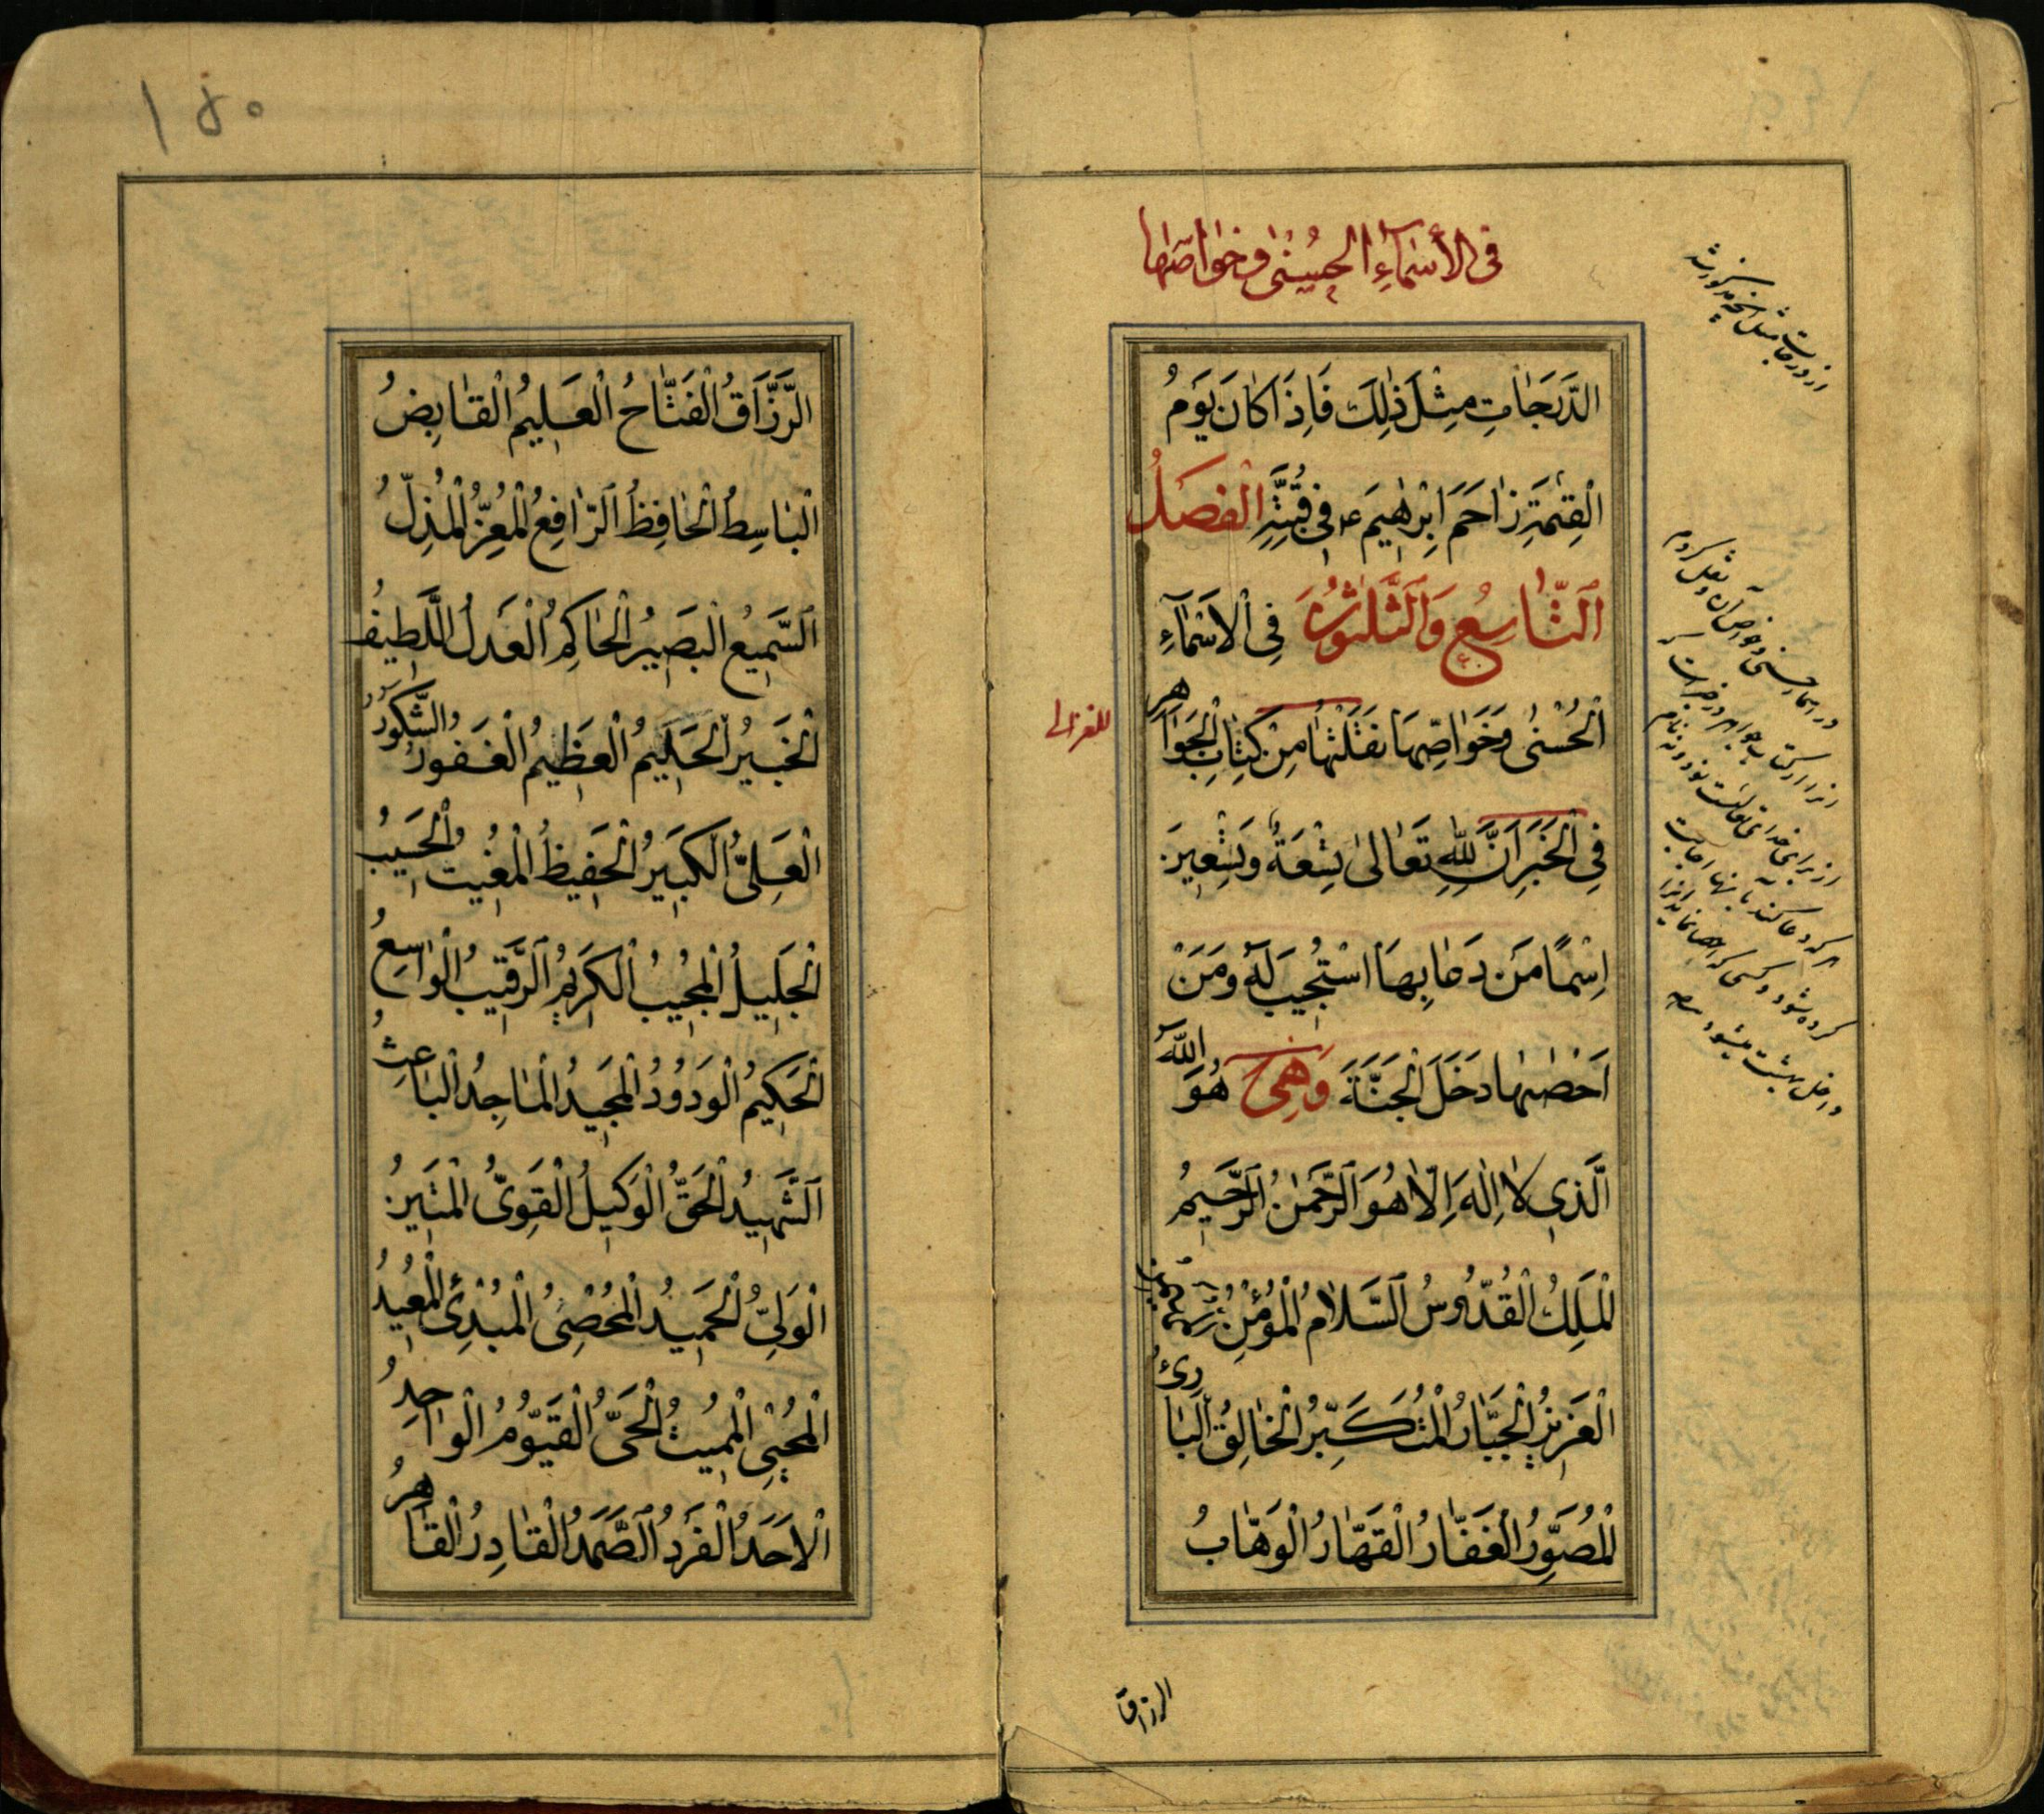 في الأسماء الحسنى وخواصها
الدَّرَجَاتِ مِثْلَ ذٰلِكَ فَاِذَا كَانَ يَوْمُ
الْقِيٰمَةِ زَاحَمَ اِبْرٰهِيمَ ع فِي قُبَّتِهِ الْفَصْلُ
اَلتَّاسِعُ وَالثَّلٰثُونَ فِي الْاَسْمَآءِ
الْحُسْنٰى وَخَوَاصِّهَا نَقَلْتُهَا مِنْ كِتَابِ الْجَوَاهِرِ
للغزالي
فِي الْخَبَرِ اَنَّ لِلّٰهِ تَعَالٰى تِسْعَةً وَتِسْعِينَ
اِسْمًا مَنْ دَعَا بِهَا اسْتُجِيبَ لَهُ وَمَنْ
اَحْصٰيهَا دَخَلَ الْجَنَّةَ وَهِيَ هُوَ اللّٰهُ
الَّذِي لَا اِلٰهَ اِلَّا هُوَ الرَّحْمٰنُ الرَّحِيمُ
الْمَلِكُ الْقُدُّوسُ السَّلَامُ الْمُؤْمِنُ الْمُهَيْمِنُ
الْعَزِيزُ الْجَبَّارُ الْمُتَكَبِّرُ الْخَالِقُ الْبَارِئُ
الْمُصَوِّرُ الْغَفَّارُ الْقَهَّارُ الْوَهَّابُ
الرزاق
۱۵۰
الرَّزَّاقُ الْفَتَّاحُ الْعَلِيمُ الْقَابِضُ
الْبَاسِطُ الْحَافِظُ الرَّافِعُ الْمُعِزُّ الْمُذِلُّ
السَّمِيعُ الْبَصِيرُ الْحَاكِمُ الْعَدْلُ اللَّطِيفُ
الْخَبِيرُ الْحَلِيمُ الْعَظِيمُ الْغَفُورُ الشَّكُورُ
الْعَلِيُّ الْكَبِيرُ الْحَفِيظُ الْمُغِيثُ الْحَسِيبُ
الْجَلِيلُ الْمُجِيبُ الْكَرِيمُ الرَّقِيبُ الْوَاسِعُ
الْحَكِيمُ الْوَدُودُ الْمَجِيدُ الْمَاجِدُ الْبَاعِثُ
الشَّهِيدُ الْحَقُّ الْوَكِيلُ الْقَوِيُّ الْمَتِينُ
الْوَلِيُّ الْحَمِيدُ الْمُحْصِيُ الْمُبْدِئُ الْمُعِيدُ
الْمُحْيِي الْمُمِيتُ الْحَيُّ الْقَيُّومُ الْوَاحِدُ
الْاَحَدُ الْفَرْدُ الصَّمَدُ الْقَادِرُ الْقَاهِرُ